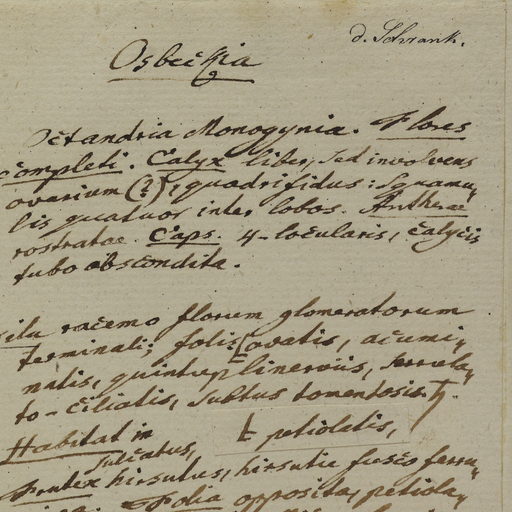 d. Schrank.
Osbeckia
Octandria Monogynia. Flores
completi. Calyx liber, sed involvens
ovarium (?), quadrifidus: Squamu„
lis quatuor inter lobos. Antherae
rostratae. Caps. 4-locularis, calycis
tubo abscondita.
racemo florum glomeratorum
terminali; foliis ovatis, acumi„
natis, quintuplinerviis, serrula„
to-ciliatis, subtus tomentosis ♄.
Habitat in
petiolatis,
sulcatus,
Frutex hirsutus, hirsutie fusco ferru„
Folia opposita, petiola„